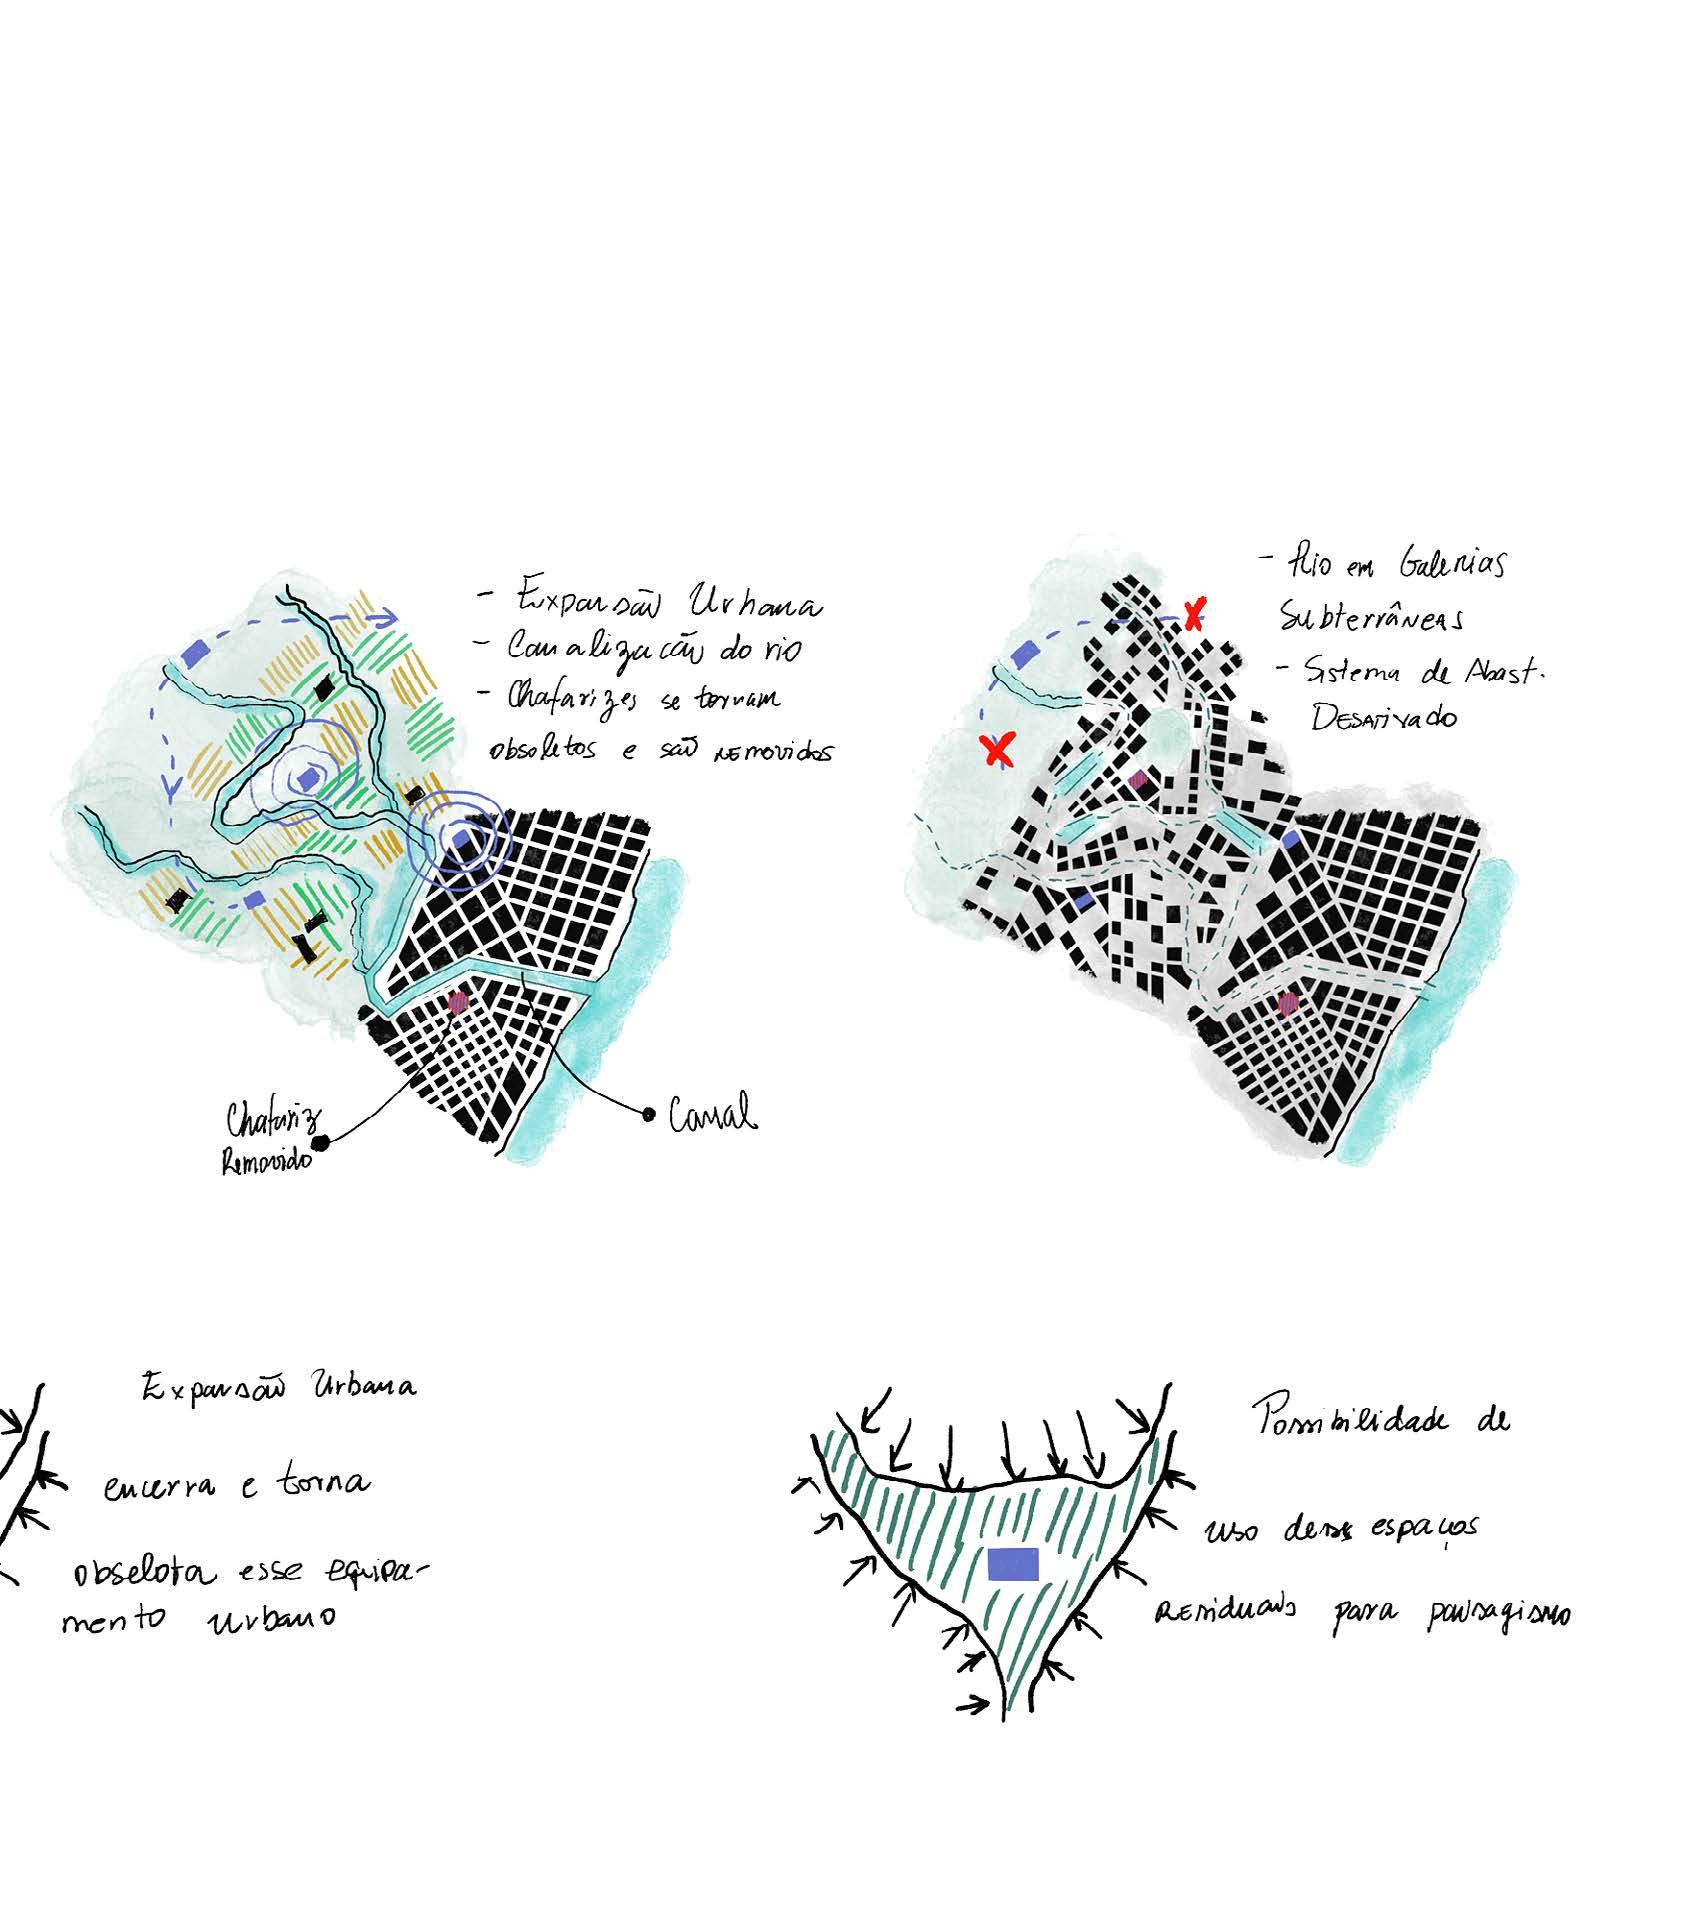 - Expansão Urbana
- Canalização do rio
- Chafarizes se tornam
obsoletos e são removidos
Chafariz
Removido
Canal
- Rio em Galerias
Subterrâneas
- Sistema de Abast.
Desativado
Expansão Urbana
encerra e torna
obselota esse equipa-
mento urbano
Possibilidade de
uso desses espaços
Residuais para paisagismo